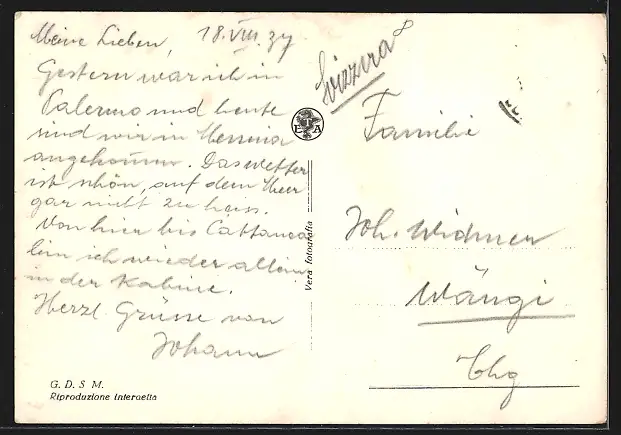 Meine Lieben, 18.VIII.37
Gestern war ich in
Palermo und heute
sind wir in Messina
angekommen. Das Wetter
ist schön, auf dem Meer
gar nicht zu heiss.
Von hier bis Cattanea
bin ich wieder allein
in der Kabine.
Herzl. Grüsse von
Johann
G. D. S M.
Riproduzione interdetta
E A
Vera fotografia
Svizzera
Familie
Joh. Widmer
Wängi
Thg